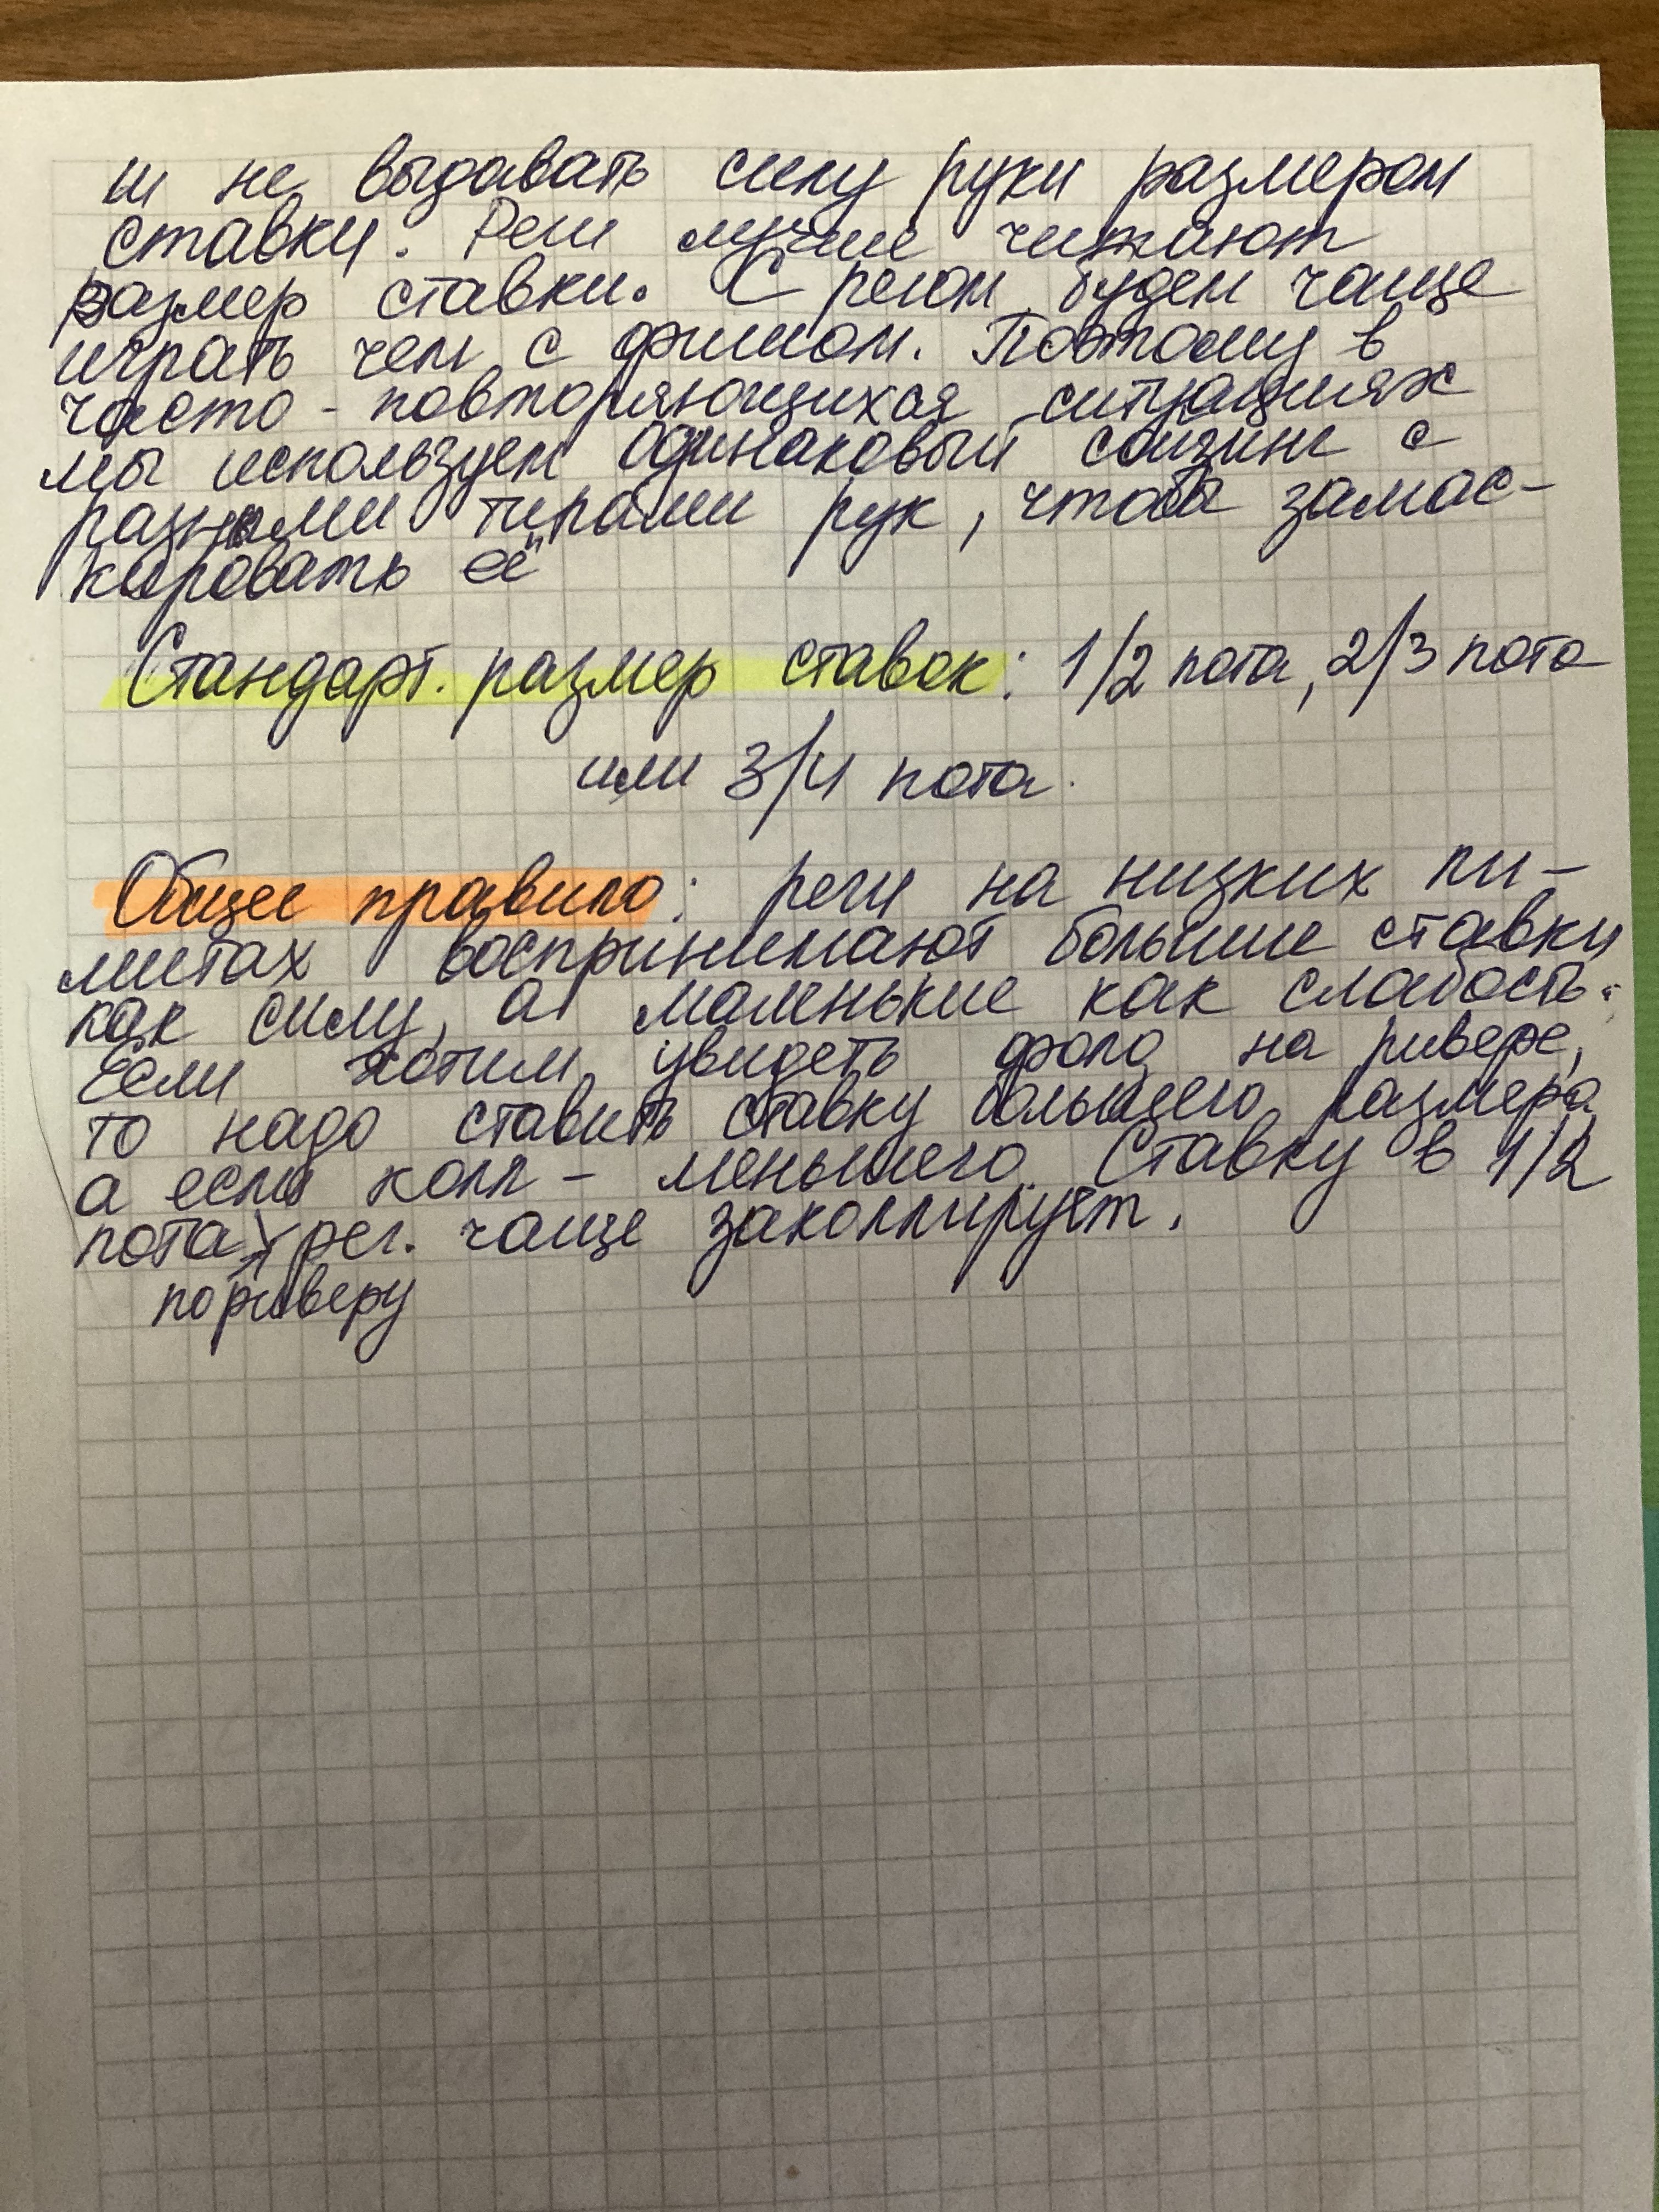 и не выдавать силу руки размером
ставки. Реги лучше читают
размер ставки. С регом будем чаще
играть чем с фишом. Поэтому в
часто - повторяющихся ситуациях
мы используем одинаковый сайзинг с
разными типами рук, чтобы замас-
кировать её
Стандарт. размер ставок: 1/2 пота, 2/3 пота
или 3/4 пота.
Общее правило: реги на низких ли-
митах воспринимают большие ставки
как силу, а маленькие как слабость.
Если хотим увидеть фолд на ривере,
то надо ставить ставку большего размера
а если колл - меньшего. Ставку в 1/2
пота рег. чаще заколлирует.
по риверу